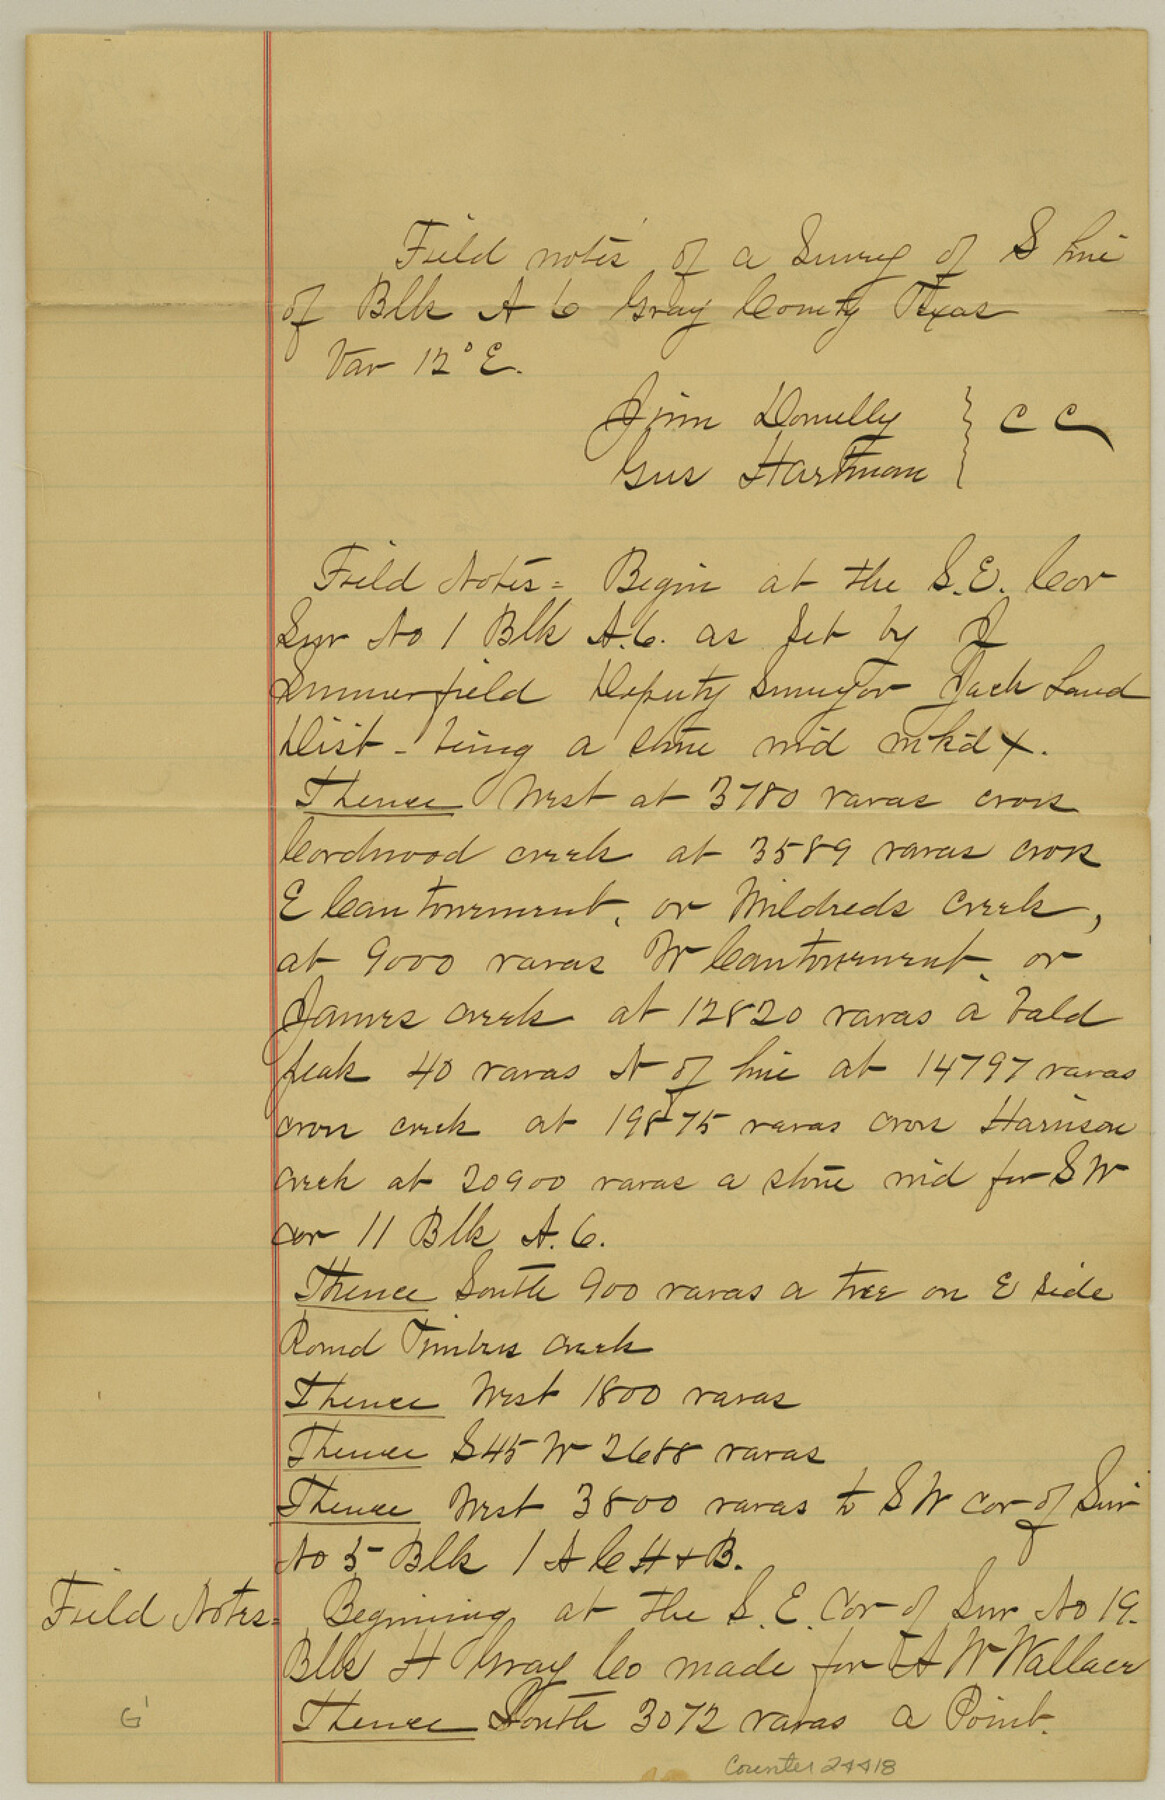 Field notes of a Survey of S line
of Blk A 6 Gray County Texas
Var 12° E.
Jim Donnelly } C C
Gus Hartman
Field Notes = Begin at the S.E. Cor
Sur No 1 Blk A.6. as set by J
Summerfield Deputy Surveyor Jack Land
Dist - being a stone md mkd X.
Thence West at 3780 varas cross
Cordwood creek at 3589 varas cross
E Cantonement, or Mildreds Creek,
at 9000 varas W Cantonement, or
James creek at 12820 varas a bald
peak 40 varas N of line at 14797 varas
cross creek at 19875 varas cross Harrison
creek at 20900 varas a stone md for S W
cor 11 Blk A. 6.
Thence South 900 varas a tree on E side
Round Timbers creek
Thence West 1800 varas
Thence S 45 W 2688 varas
Thence West 3800 varas to S W cor of Sur
No 5 Blk 1 A C H + B.
Field Notes = Beginning at the S. E. Cor of Sur No 19.
Blk H Gray Co made for A W Wallace
Thence South 3072 varas a Point.
G'
Counter 24418